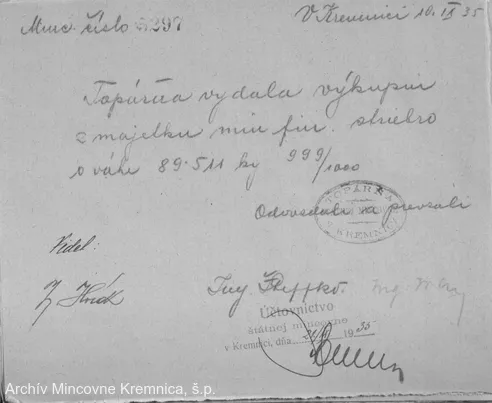 Minc. číslo 5297
V Kremnici 10. IX 35
Topárňa vydala výkupu
z majetku min fin. striebro
o váhe 89.511 kg 999/1000
TOPÁRŇA
V KREMNICI
Odovzdali a prevzali
Videl:
Ing
Účtovníctvo
štátnej mincovne
v Kremnici, dňa 1935
Archív Mincovne Kremnica, š.p.